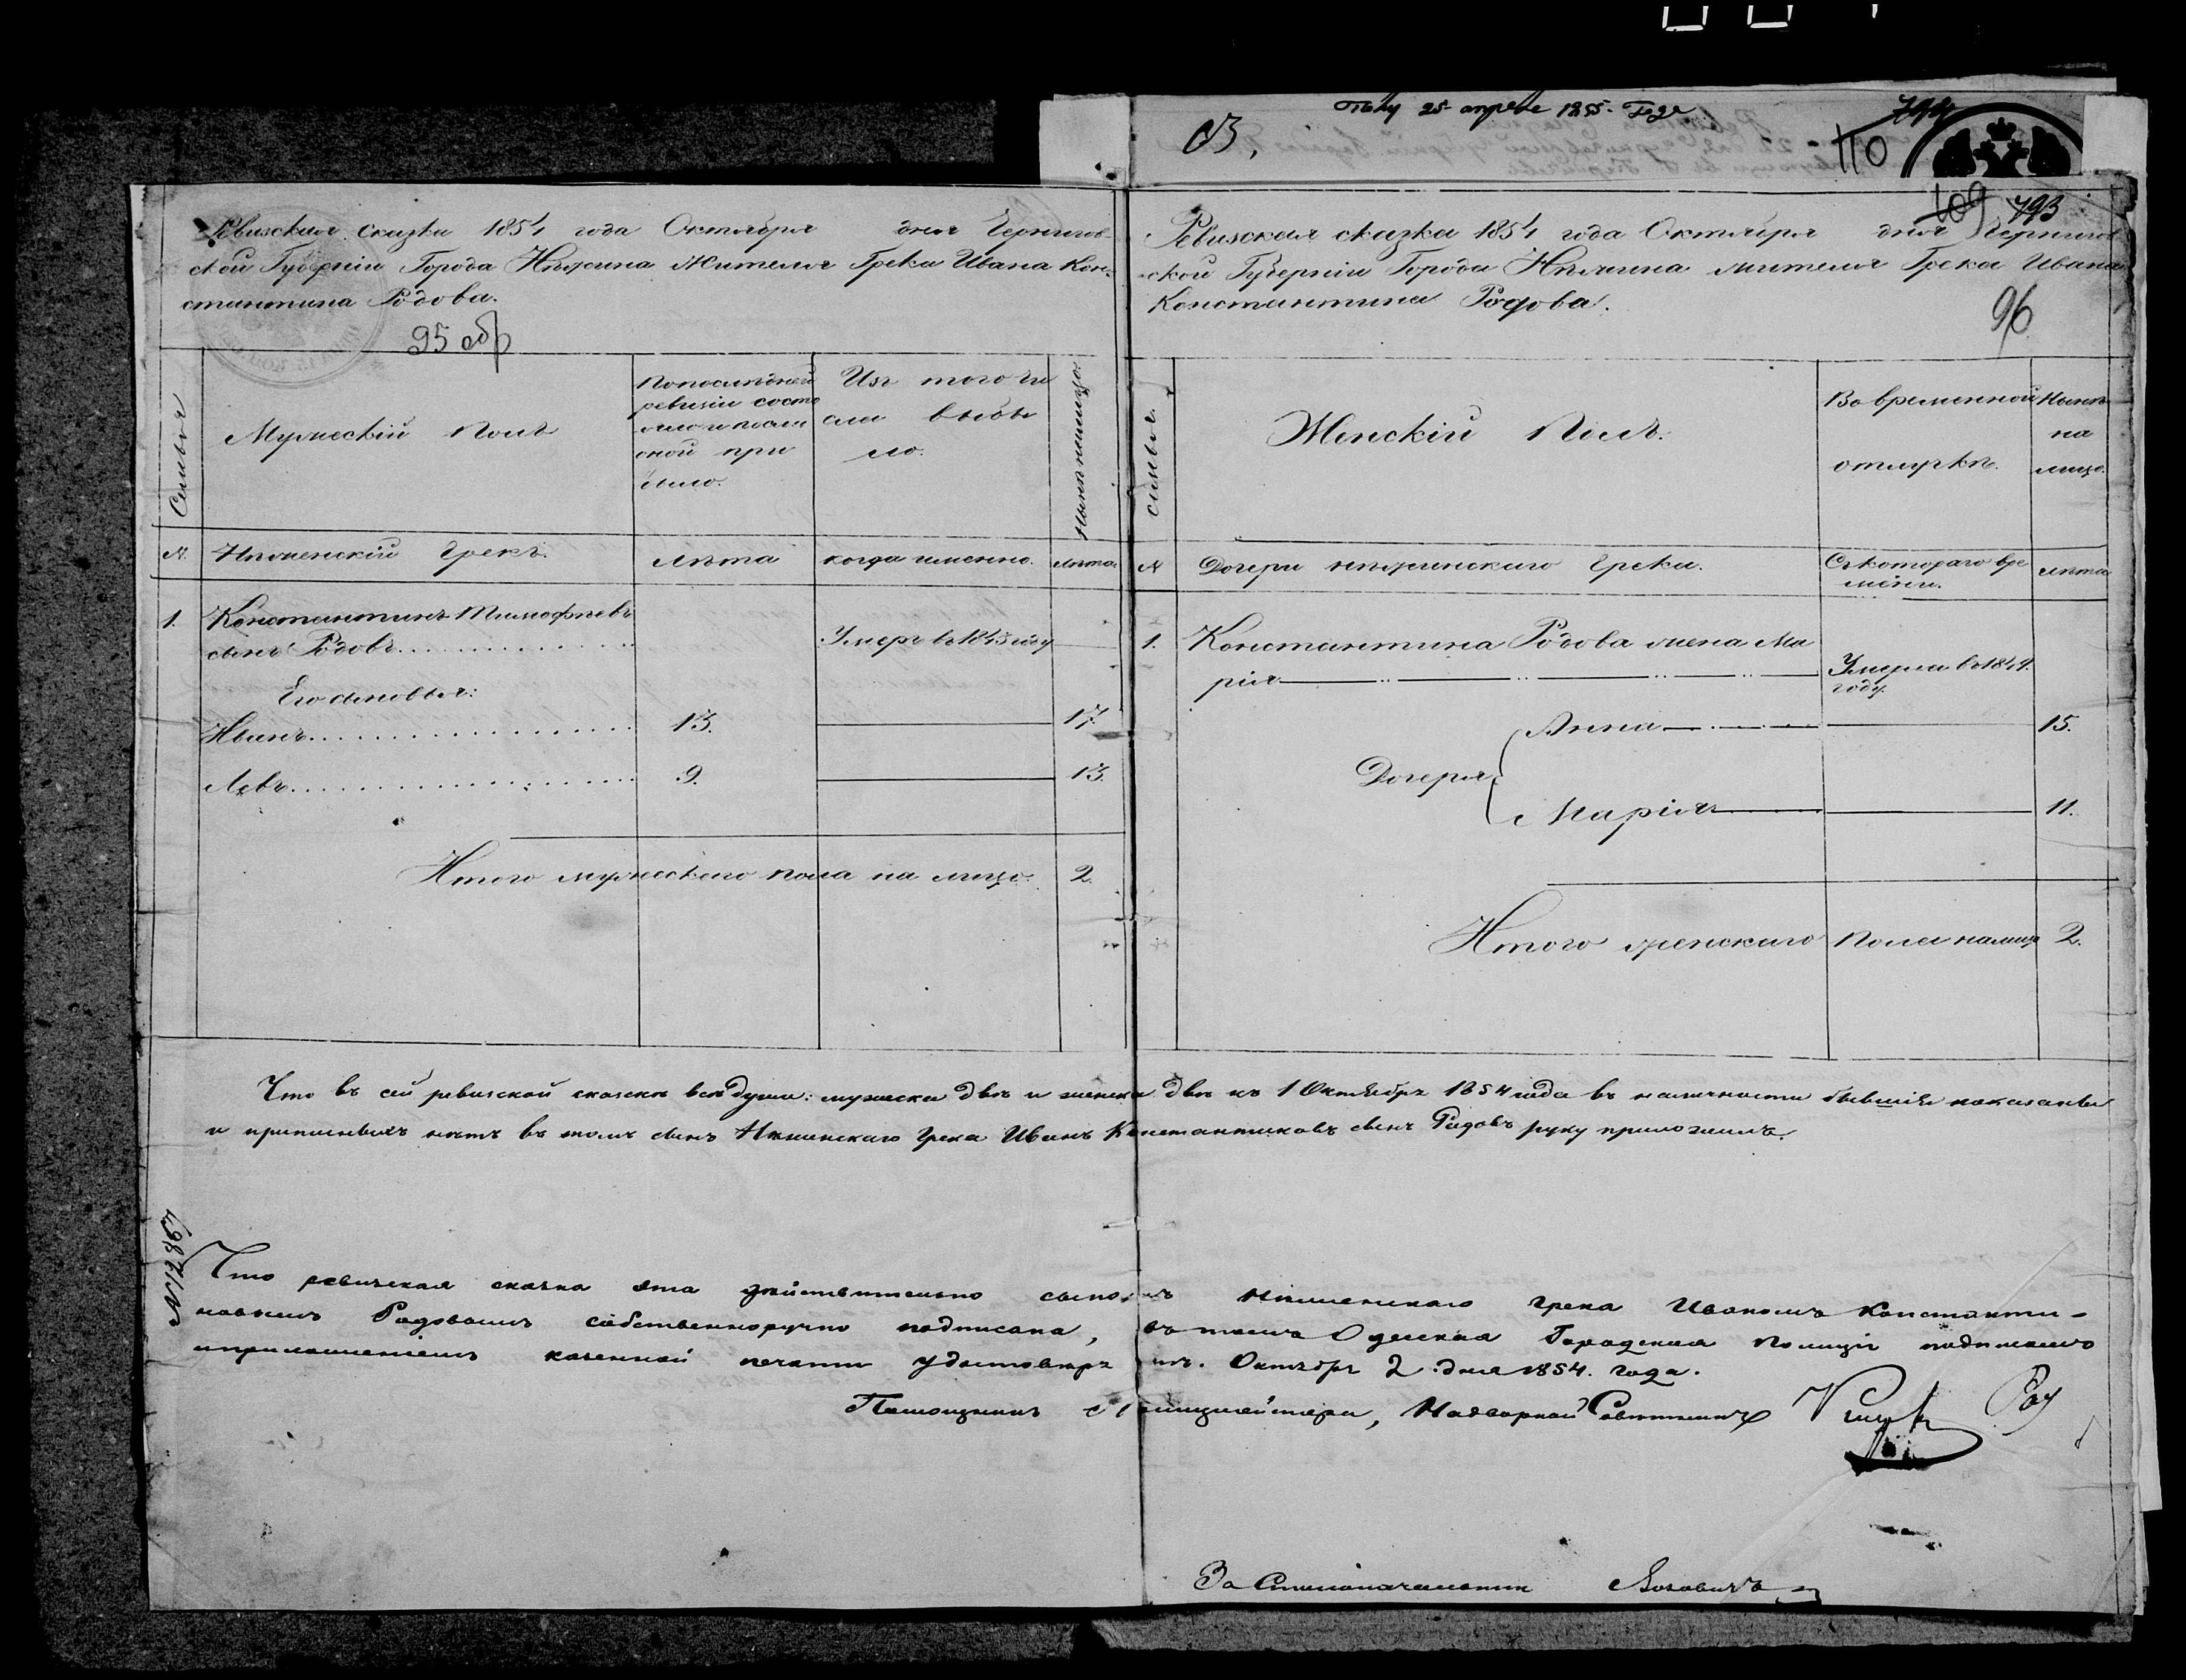 25 апреля 1855 Года
110
109 793
Ревизская сказка 1854 года Октября дня Чернигов
ской Губерніи Города Нѣжина Жителя Грека Ивана Кон-
стантина Родова.
95 об
Семья
Мужескій полъ
По последней
ревизіи состо
яло и посли
оной при
было.
Изъ того чи
сла выбы
ло.
Нынѣ на лицо.
№. Нѣженскій Грекъ. Лѣта когда именно. Лѣта
1. Константинъ Тимофѣевъ
сынъ Родовъ Умеръ въ 1843 году
Его сыновья:
Иванъ 13. 17.
Левъ 9. 13.
Итого мужескаго пола на лицо. 2.
Ревизская сказка 1854 года Октября дня Чернигов
ской Губерніи Города Нѣжина жителя Грека Ивана
Константина Родова.
96
Семья.
Женскій Полъ.
Во временной
отлучкѣ.
Нынѣ
на
лицо.
№ Дочери нѣжинскаго Грека. Съ котораго вре
мени. лѣта
1. Константина Родова жена Ма
рія Умерла въ 1849.
году.
Анна 15.
Дочеря:
Марія 11.
Итого женскаго Пола на лицо 2.
Что въ сей ревизской сказскѣ всѣ души: мужеска двѣ и женска двѣ къ 1 Октября 1854 года въ наличности бывшія показаны
и прописныхъ нѣтъ въ томъ сынъ Нѣжинскаго Грека Иванъ Константиновъ сынъ Родовъ руку приложилъ.
№12867
Что ревизская сказка эта дѣйствительно сыномъ Нѣженскаго грека Иваномъ Константи-
новымъ Родовымъ собственноручно подписана, въ томъ Одесская Городская Полиція подписомъ
и приложеніемъ казенной печати удостовѣряетъ. Октября 2 дня 1854. года.
Помощникъ Полицмейстера, Надворный Совѣтникъ
За Столоначальника